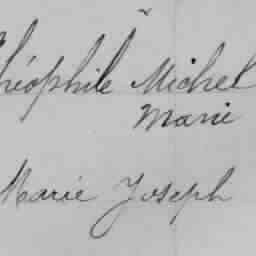 Théophile Michel
Marie
Marie Joseph